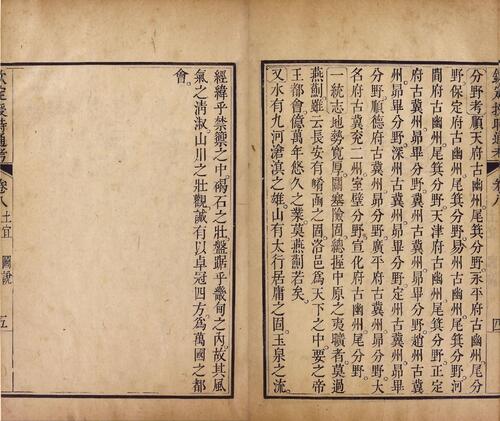 欽定授時通考 卷八 四
分野考順天府古幽州尾箕分野。永平府古幽州尾分
野。保定府古幽州尾箕分野。易州古幽州尾箕分野。河
間府古幽州尾箕分野。天津府古幽州尾箕分野。正定
府古冀州昴畢分野。冀州古冀州昴畢分野。趙州古冀
州昴畢分野。深州古冀州昴畢分野。定州古冀州昴畢
分野。順德府古冀州昴分野。廣平府古冀州昴分野。大
名府古冀兗二州室壁分野。宣化府古幽州尾分野。
一統志地勢寬厚。關塞險固。總握中原之夷曠者。莫過
燕薊。雖云長安有崤函之固。洛邑為天下之中。要之帝
王都會。億萬年悠久之業。莫燕薊若矣。
又水有九河滄溟之雄。山有太行居庸之固。玉泉之流。
經緯乎禁籞之中。碣石之壯。盤踞乎畿甸之內。故其風
氣之清淑。山川之壯觀。誠有以卓冠四方。為萬國之都
會。
欽定授時通考 卷八 土宜 圖說 五